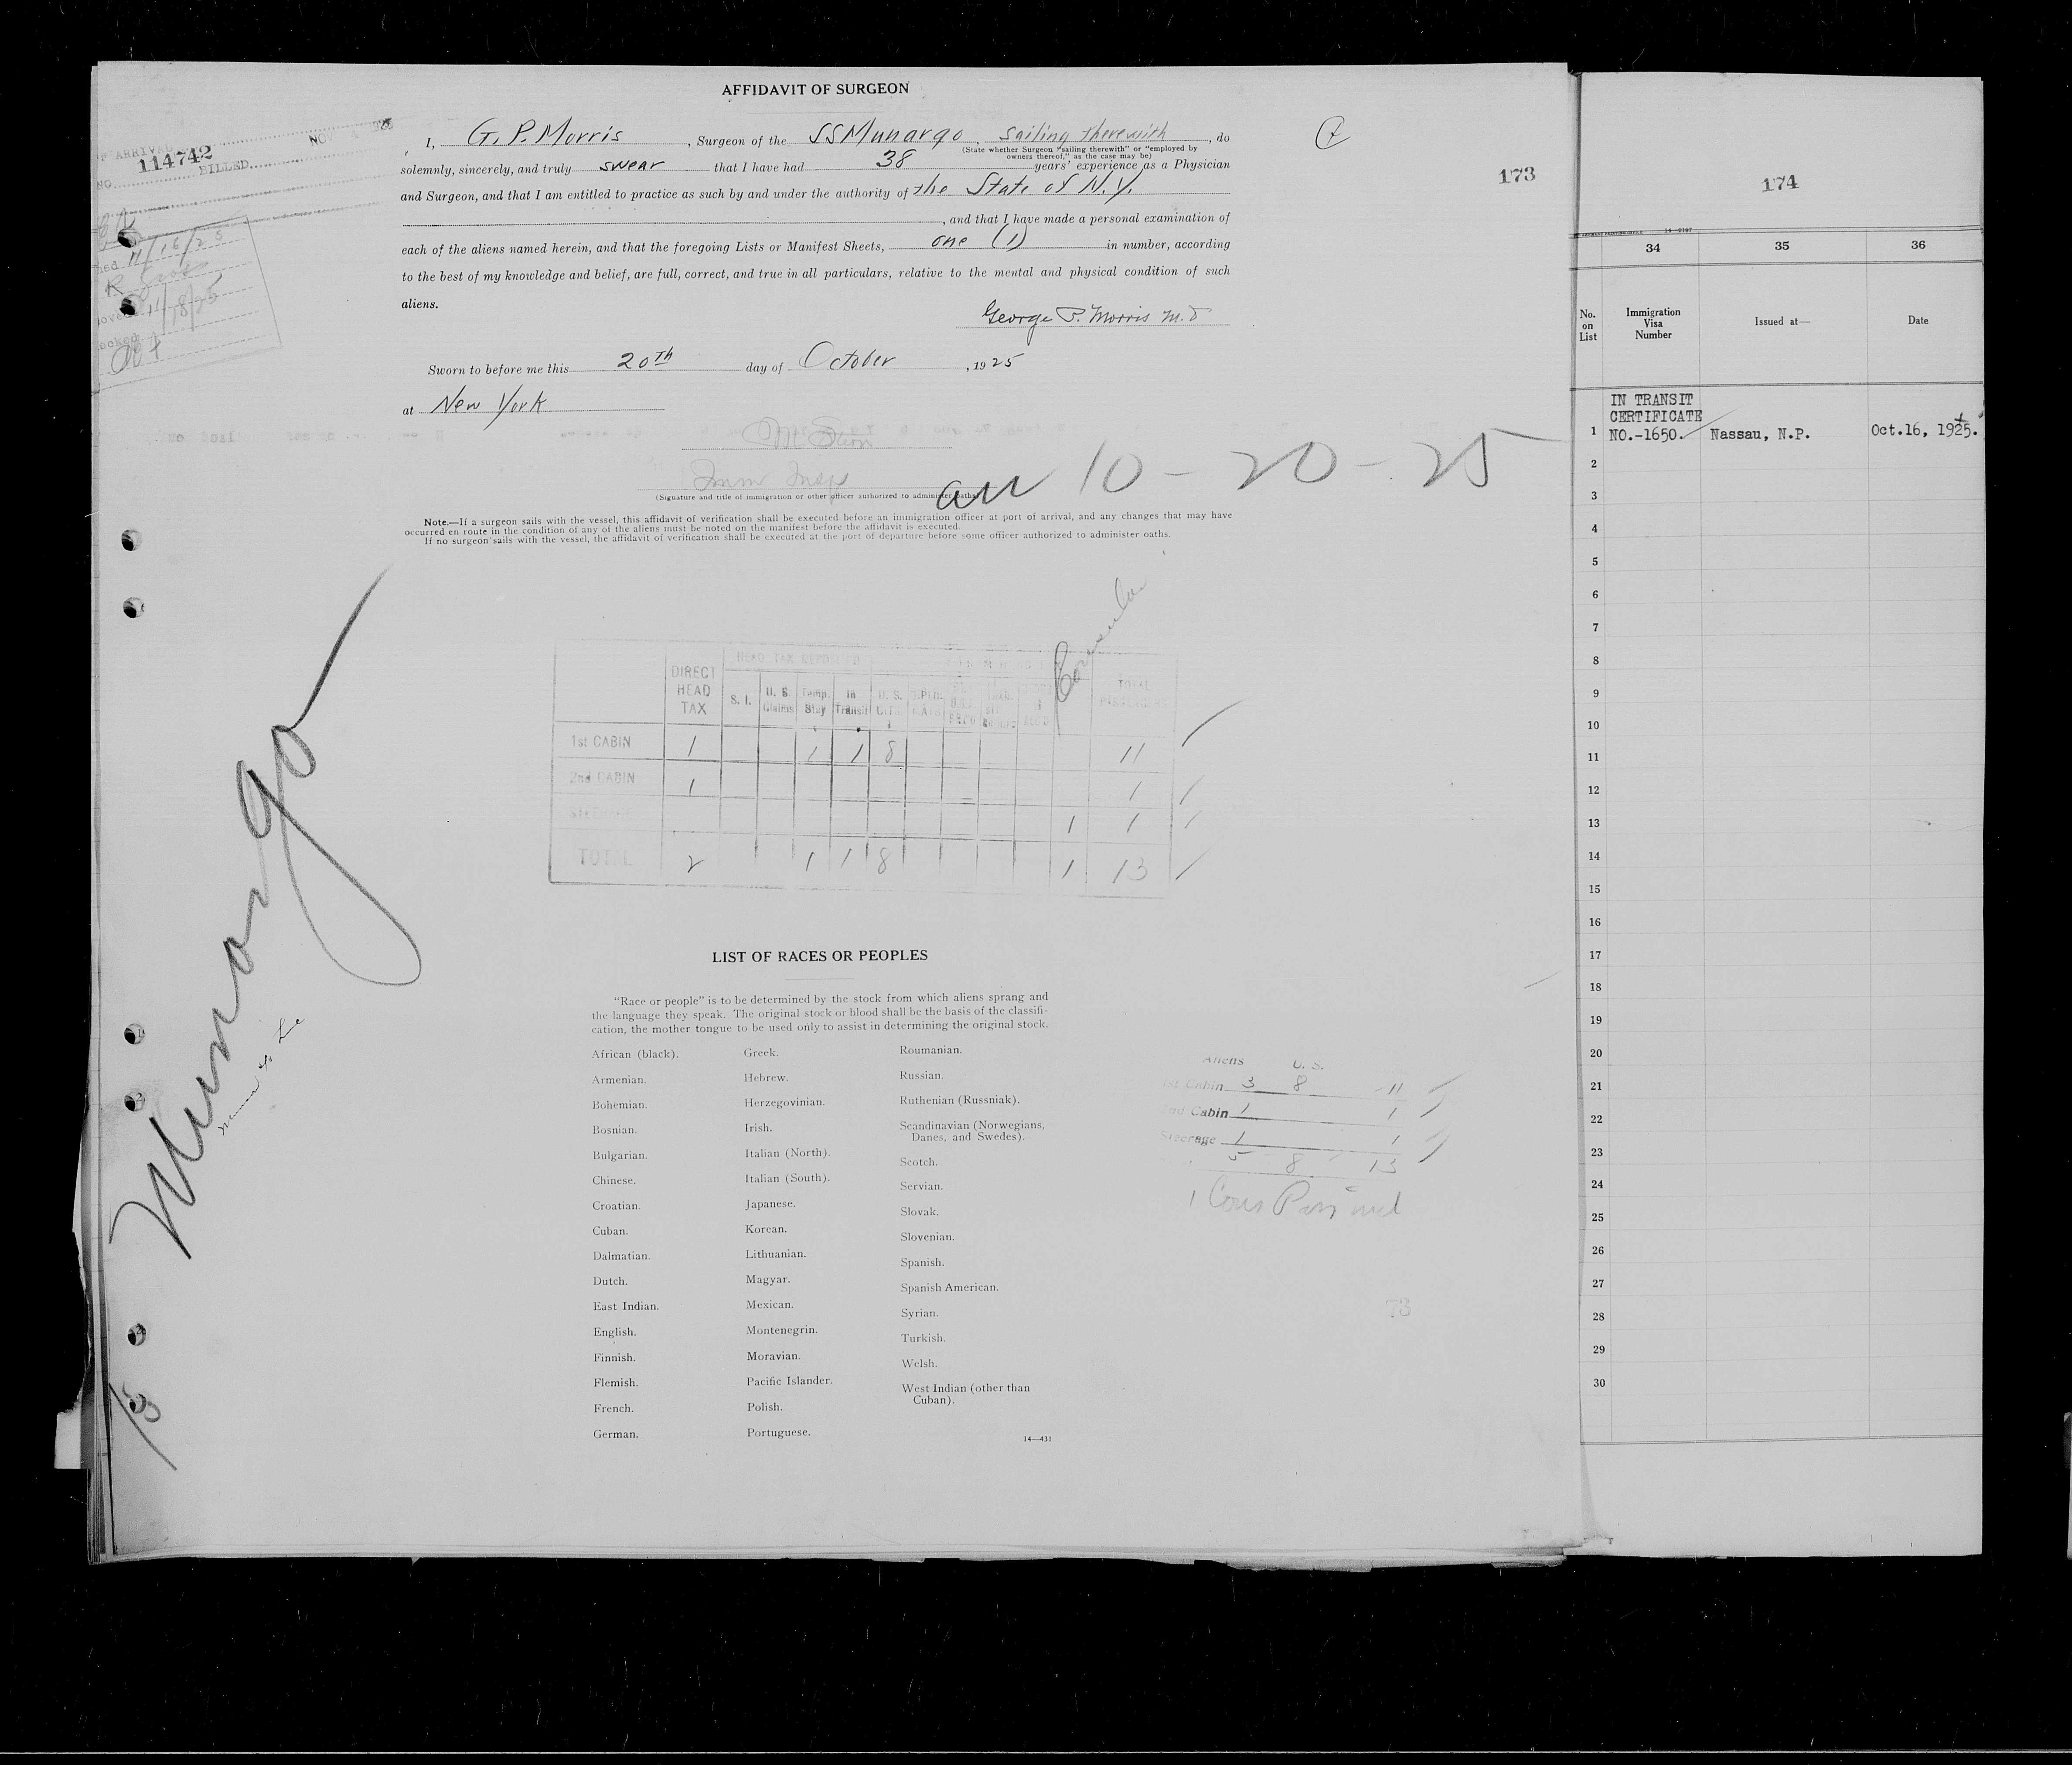 AFFIDAVIT OF SURGEON
I, G. P. Morris, Surgeon of the SS Munargo, sailing therewith, do
(State whether Surgeon "sailing therewith" or "employed by
owners thereof," as the case may be)
solemnly, sincerely, and truly swear that I have had 38 years' experience as a Physician
and Surgeon, and that I am entitled to practice as such by and under the authority of the State of N.Y.
, and that I have made a personal examination of
each of the aliens named herein, and that the foregoing Lists or Manifest Sheets, one (1) in number, according
to the best of my knowledge and belief, are full, correct, and true in all particulars, relative to the mental and physical condition of such
aliens.
George P. Morris M.D
Sworn to before me this 20th day of October, 1925
at New York
Imm Insp
(Signature and title of immigration or other officer authorized to administer oaths)
10-20-25
Note.—If a surgeon sails with the vessel, this affidavit of verification shall be executed before an immigration officer at port of arrival, and any changes that may have
occurred en route in the condition of any of the aliens must be noted on the manifest before the affidavit is executed.
If no surgeon sails with the vessel, the affidavit of verification shall be executed at the port of departure before some officer authorized to administer oaths.
114742
NO. BILLED
11/16/25
11/18/25
173
Munargo
HEAD TAX DEPOSITED
DIRECT HEAD TAX S. I. U. S. Claims Temp. Stay In Transit U. S. TOTAL PASSENGERS
1st CABIN 1 1 1 8 11
2nd CABIN 1 1
STEERAGE 1 1
TOTAL 2 1 1 8 1 13
LIST OF RACES OR PEOPLES
"Race or people" is to be determined by the stock from which aliens sprang and
the language they speak. The original stock or blood shall be the basis of the classifi-
cation, the mother tongue to be used only to assist in determining the original stock.
African (black).
Armenian.
Bohemian.
Bosnian.
Bulgarian.
Chinese.
Croatian.
Cuban.
Dalmatian.
Dutch.
East Indian.
English.
Finnish.
Flemish.
French.
German.
Greek.
Hebrew.
Herzegovinian.
Irish.
Italian (North).
Italian (South).
Japanese.
Korean.
Lithuanian.
Magyar.
Mexican.
Montenegrin.
Moravian.
Pacific Islander.
Polish.
Portuguese.
Roumanian.
Russian.
Ruthenian (Russniak).
Scandinavian (Norwegians,
Danes, and Swedes).
Scotch.
Servian.
Slovak.
Slovenian.
Spanish.
Spanish American.
Syrian.
Turkish.
Welsh.
West Indian (other than
Cuban).
14—431
Aliens U. S.
1st Cabin 3 8 11
2nd Cabin 1 1
Steerage 1 1
5 8 13
73
174
34 35 36
No. on List Immigration Visa Number Issued at— Date
IN TRANSIT
CERTIFICATE
1 NO.-1650. Nassau, N.P. Oct.16, 1925.
2
3
4
5
6
7
8
9
10
11
12
13
14
15
16
17
18
19
20
21
22
23
24
25
26
27
28
29
30